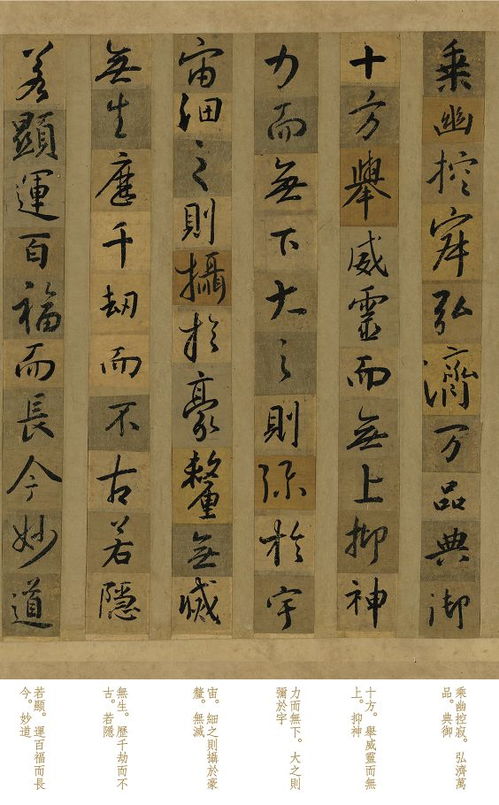 乘幽控寂弘濟万品典御
十方舉威靈而無上抑神
力而無下大之則弥於宇
宙細之則攝於豪釐無滅
無生歷千劫而不古若隱
若顯運百福而長今妙道
乘幽控寂。弘濟萬
品。典御
十方。舉威靈而無
上。抑神
力而無下。大之則
彌於宇
宙。細之則攝於豪
釐。無滅
無生。歷千劫而不
古。若隱
若顯。運百福而長
今。妙道